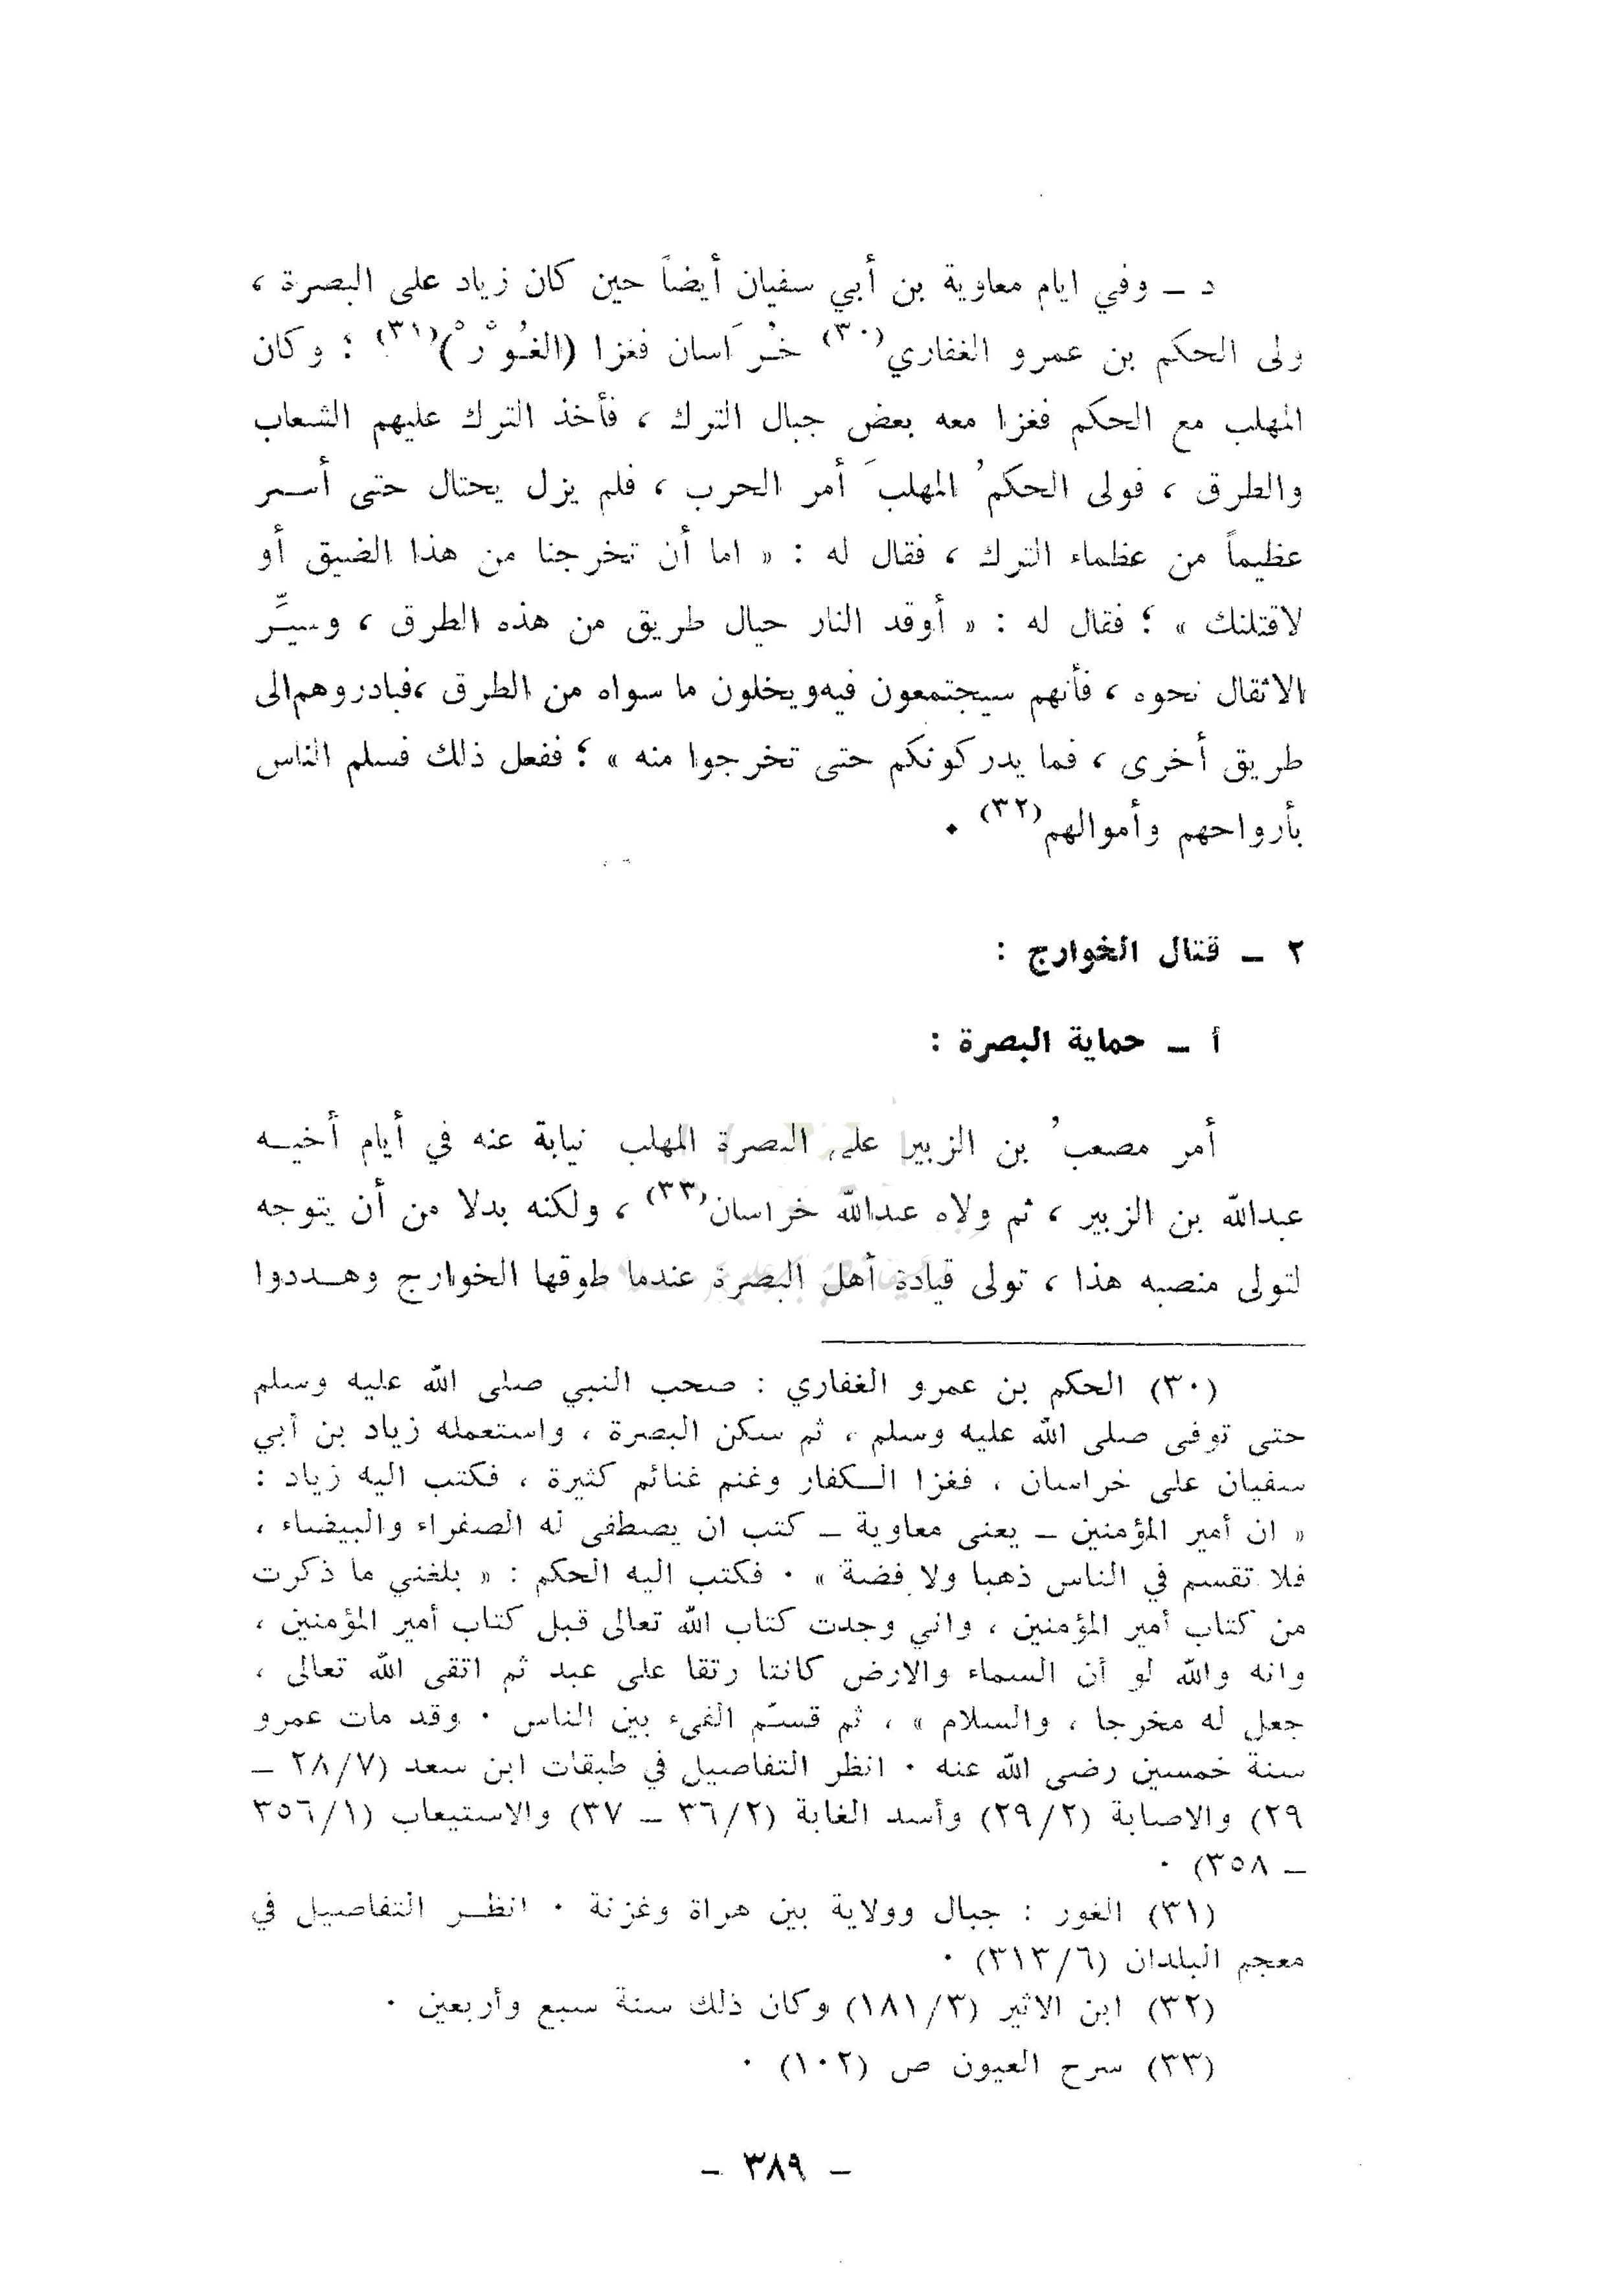 د ــ وفي ايام معاوية بن أبي سفيان أيضاً حين كان زياد على البصرة ،
ولى الحكم بن عمرو الغفاري(٣٠) خُرَاسان فغزا (الغُوْرْ)(٣١) ؛ وكان
المهلب مع الحكم فغزا معه بعض جبال الترك ، فأخذ الترك عليهم الشعاب
والطرق ، فولى الحكمُ المهلبَ أمر الحرب ، فلم يزل يحتال حتى أسر
عظيماً من عظماء الترك ، فقال له : « اما أن تخرجنا من هذا الضيق أو
لاقتلنك » ؛ فقال له : « أوقد النار حيال طريق من هذه الطرق ، وسيِّر
الاثقال نحوه ، فأنهم سيجتمعون فيه ويخلون ما سواه من الطرق ، فبادروهم الى
طريق أخرى ، فما يدركونكم حتى تخرجوا منه » ؛ ففعل ذلك فسلم الناس
بأرواحهم وأموالهم(٣٢) .
٢ ــ قتال الخوارج :
أ ــ حماية البصرة :
أمر مصعبُ بن الزبير على البصرة المهلب نيابة عنه في أيام أخيه
عبدالله بن الزبير ، ثم ولاه عبدالله خراسان(٣٣) ، ولكنه بدلا من أن يتوجه
لتولى منصبه هذا ، تولى قيادة أهل البصرة عندما طوقها الخوارج وهددوا
(٣٠) الحكم بن عمرو الغفاري : صحب النبي صلى الله عليه وسلم
حتى توفى صلى الله عليه وسلم ، ثم سكن البصرة ، واستعمله زياد بن أبي
سفيان على خراسان ، فغزا الكفار وغنم غنائم كثيرة ، فكتب اليه زياد :
« ان أمير المؤمنين ــ يعنى معاوية ــ كتب ان يصطفى له الصفراء والبيضاء ،
فلا تقسم في الناس ذهبا ولا فضة » . فكتب اليه الحكم : « بلغني ما ذكرت
من كتاب أمير المؤمنين ، واني وجدت كتاب الله تعالى قبل كتاب أمير المؤمنين ،
وانه والله لو أن السماء والارض كانتا رتقا على عبد ثم اتقى الله تعالى ،
جعل له مخرجا ، والسلام » ، ثم قسّم الفيء بين الناس . وقد مات عمرو
سنة خمسين رضى الله عنه . انظر التفاصيل في طبقات ابن سعد (٢٨/٧ ــ
٢٩) والاصابة (٢٩/٢) وأسد الغابة (٣٦/٢ ــ ٣٧) والاستيعاب (٣٥٦/١
ــ ٣٥٨) .
(٣١) الغور : جبال وولاية بين هراة وغزنة . انظر التفاصيل في
معجم البلدان (٣١٣/٦) .
(٣٢) ابن الاثير (١٨١/٣) وكان ذلك سنة سبع وأربعين .
(٣٣) سرح العيون ص (١٠٢) .
- ٣٨٩ -